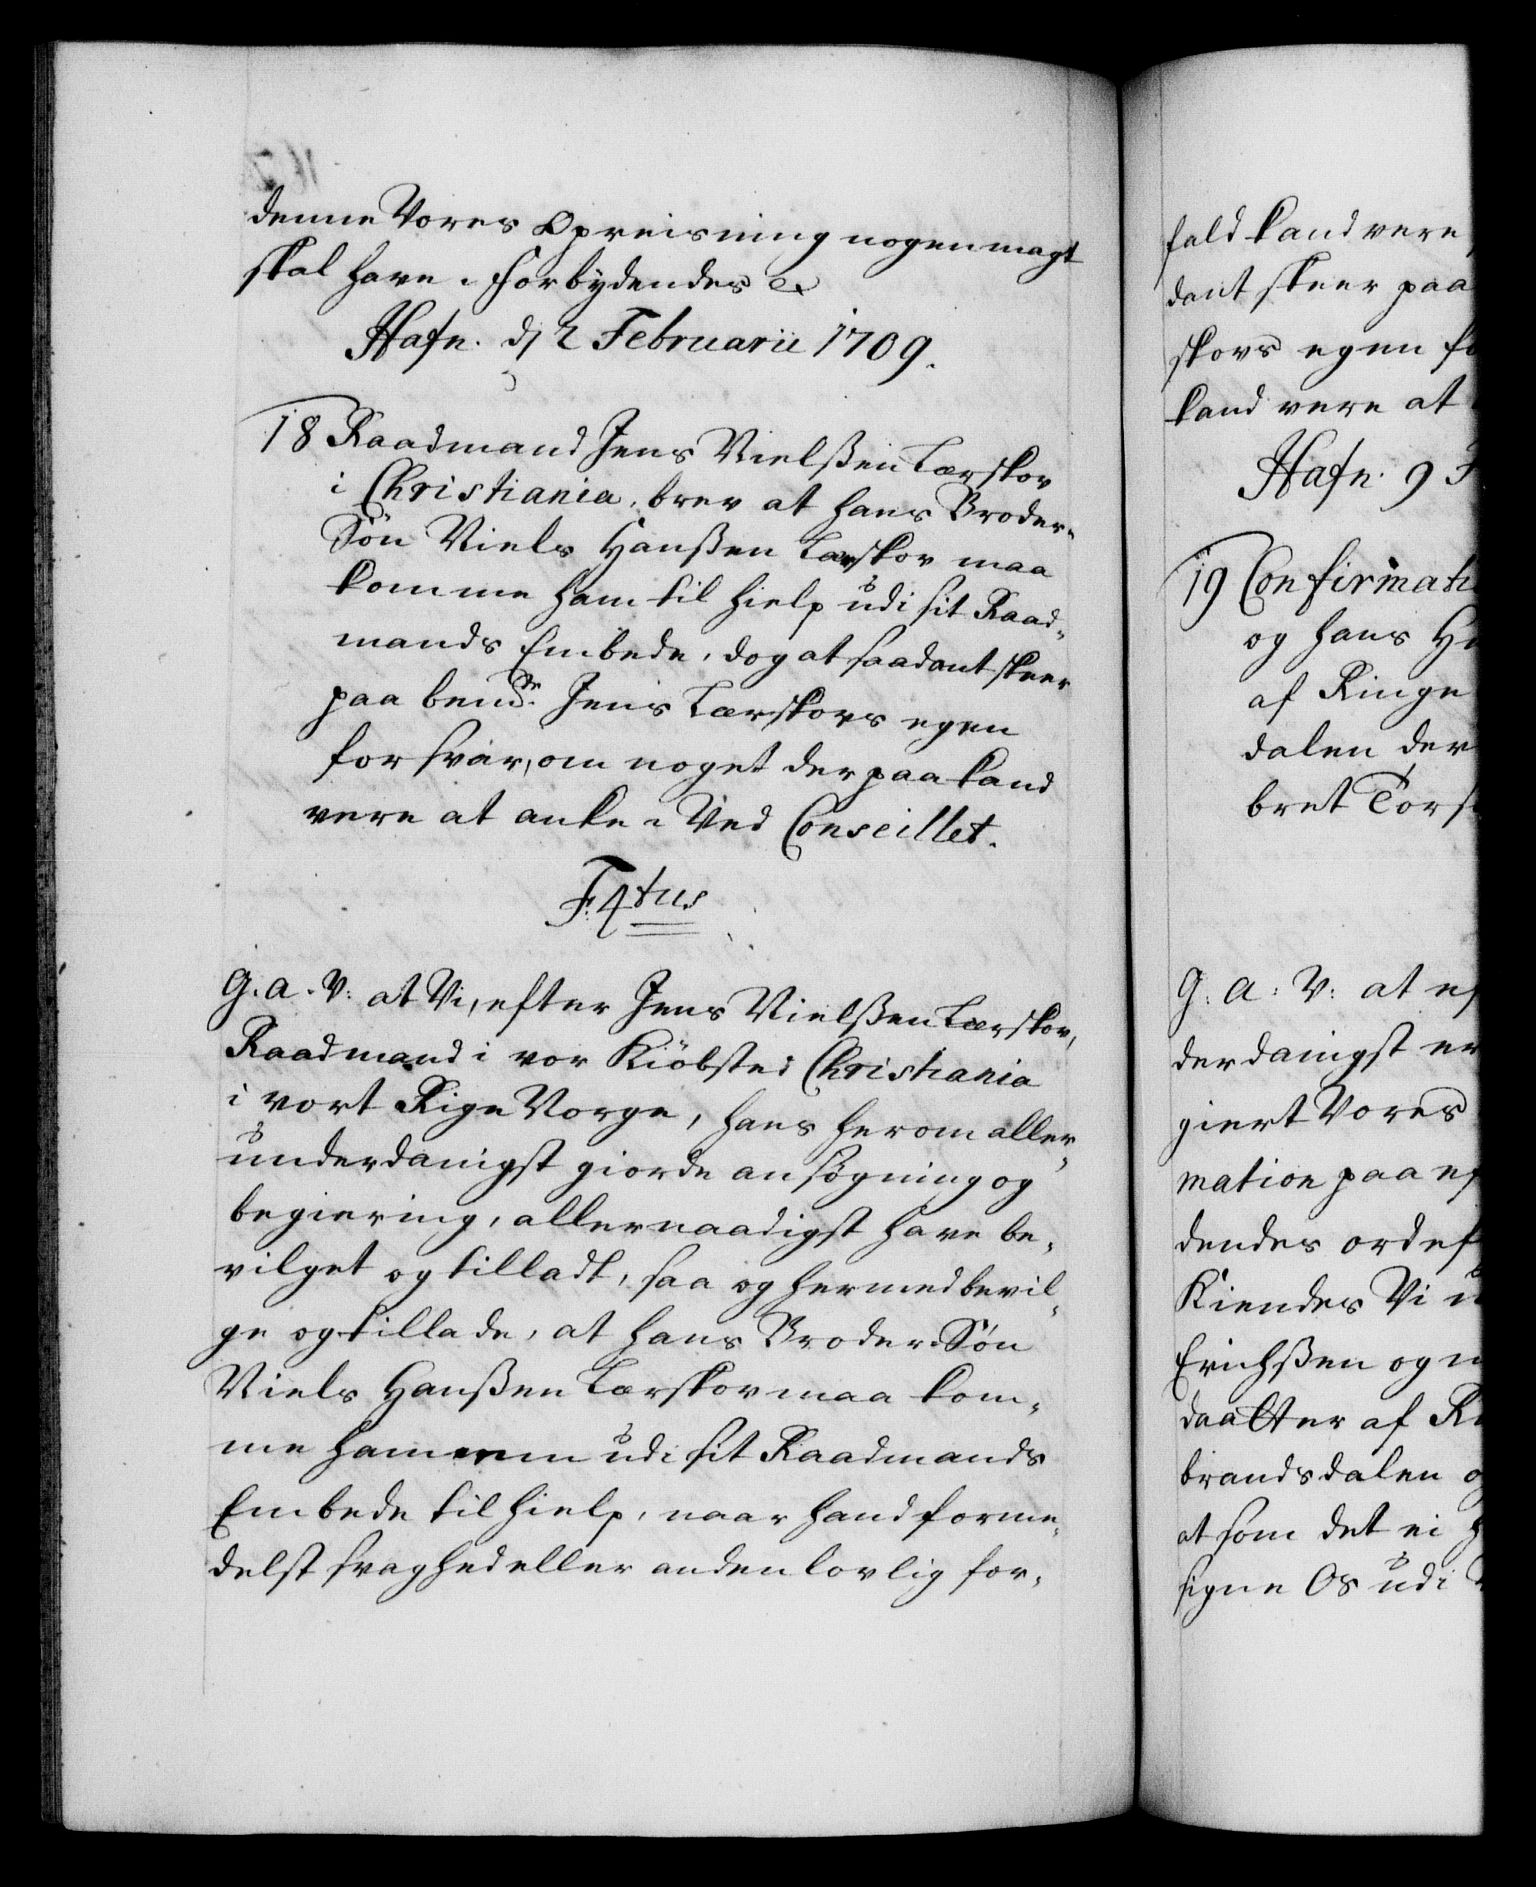 denne Vores Opreisning nogen magt
skal have. Forbydendes &
Hafn. d/ 2 Februarii 1709.
18 Raadmand Jens Nielßen Lerskov
i Christiania, brev at hans Broder-
Søn Niels Hanßen Lerskov maa
komme ham til hielp udi sit Raad-
mands Embede, dog at saadant skeer
paa bemte. Jens Lerskovs egen
forsvar, om noget derpaa kand
vere at anke. Ved Conseillet.
F. 4tus
G. a. V: at Vi, efter Jens Nielßen Lerskov,
Raadmand i vor Kiöbsted Christiania
i vort Rige Norge, hans herom aller-
underdanigst giorde ansøgning og
begiering, allernaadigst have be-
vilget og tilladt, saa og hermed bevil-
ge og tillade, at hans Broder Søn
Niels Hanßen Lerskov maa kom-
me ham udi sit Raadmands
Embede til hielp, naar hand forme-
delst svaghed eller anden lovlig for-
fald kand vere,
dant skeer paa
skovs egen
kand vere at
Hafn. 9
19 Confirmati
og hans
af Ringe
dalen der
bret
G: a: V: at
derdanigst er
giert Vores
mation paa
dendes ord
Kiendes Vi
Erichßen og
daatter af
brandsdalen
at som det ei
signe Os udi